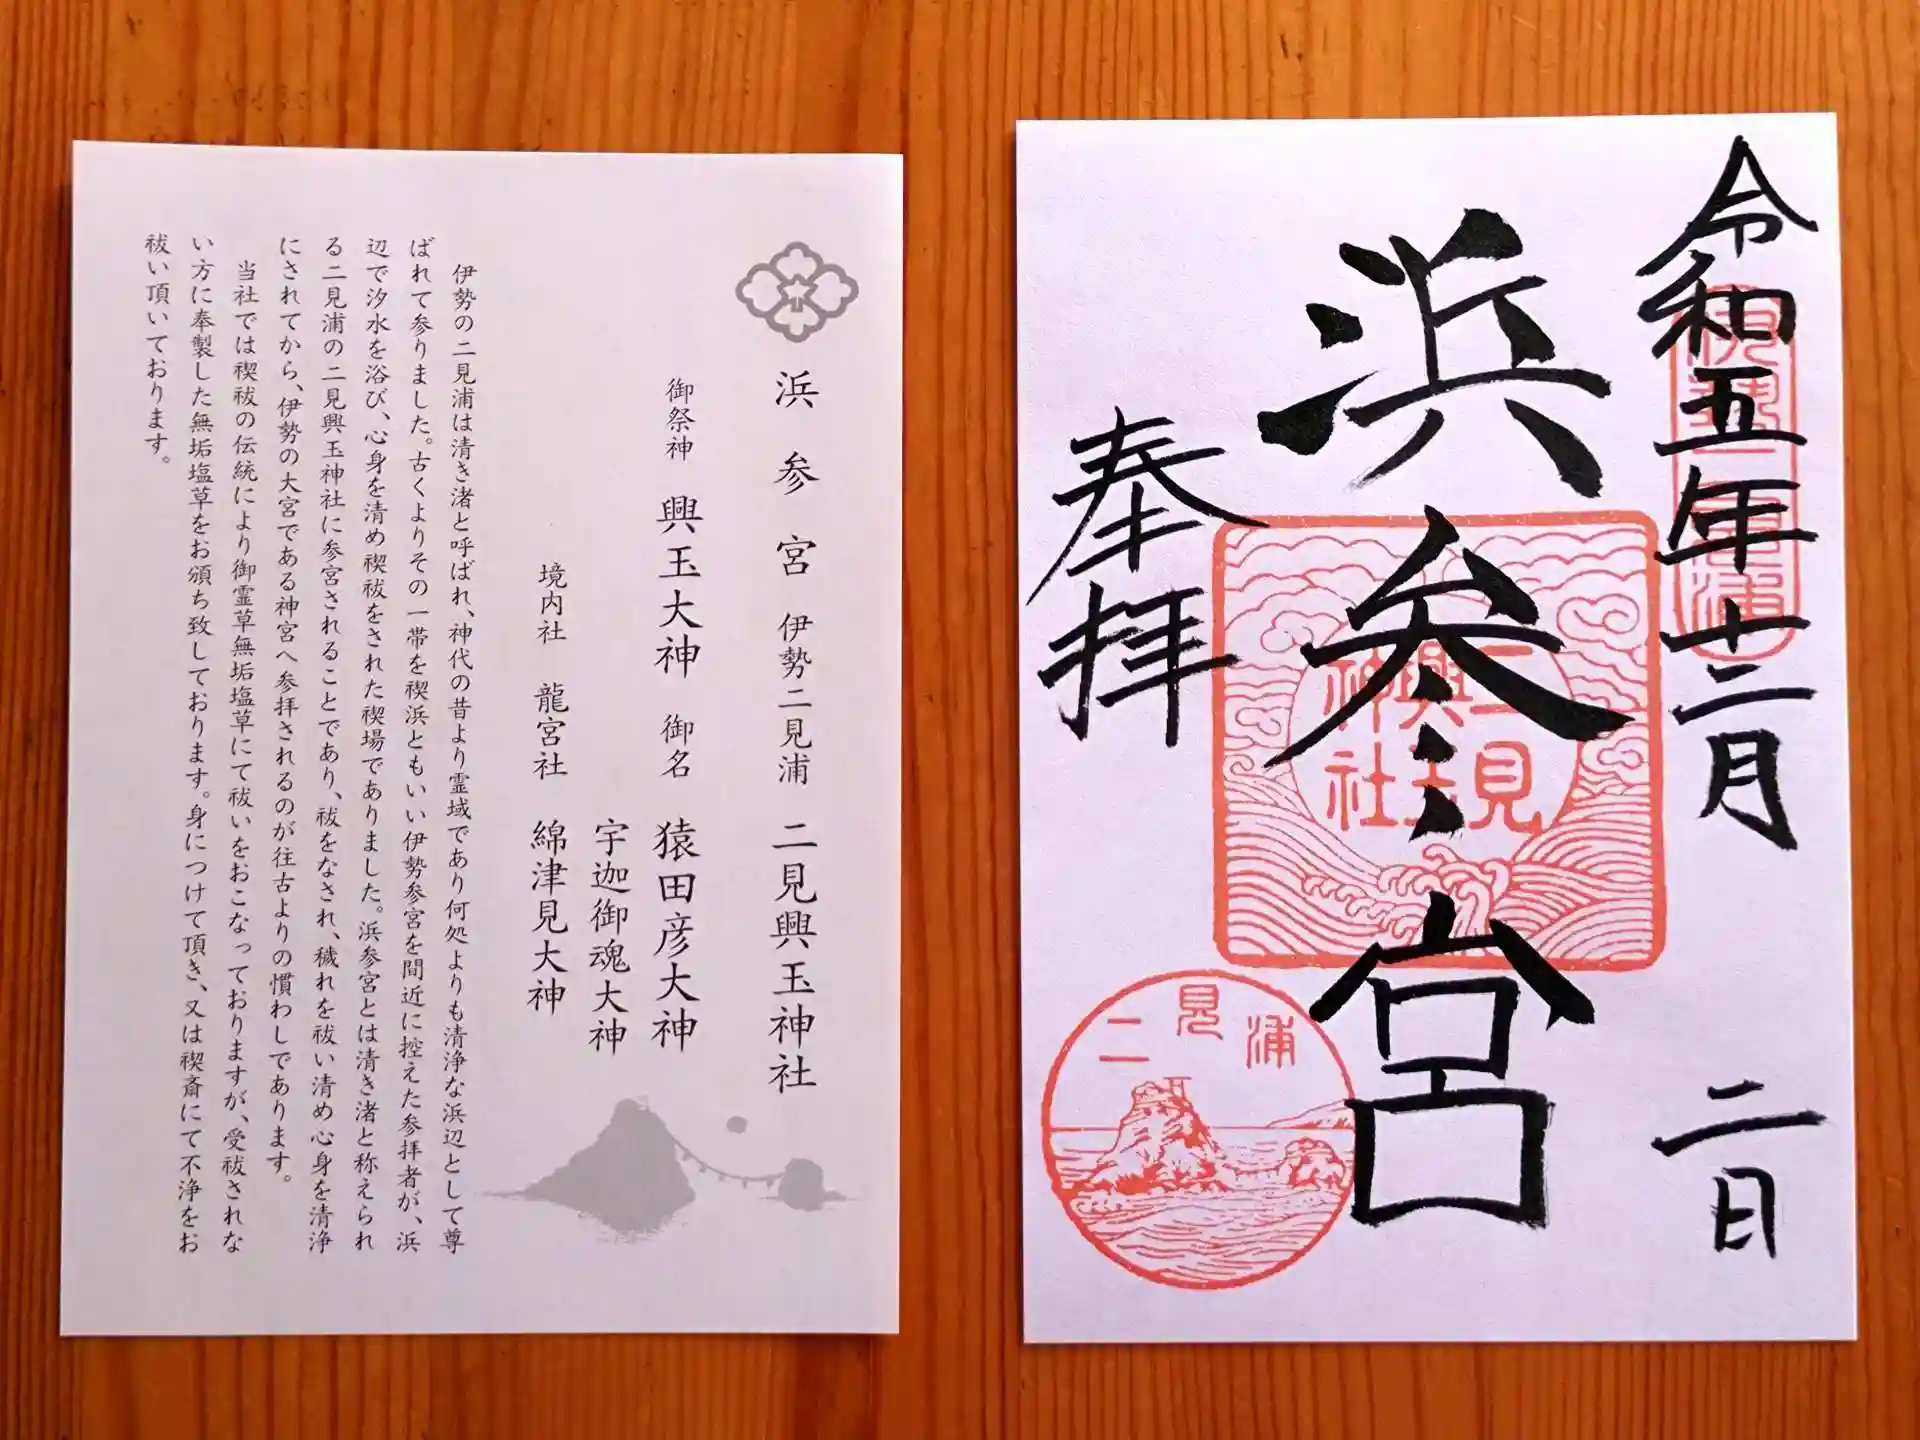 浜参宮 伊勢二見浦 二見興玉神社
御祭神 興玉大神 御名 猿田彦大神
宇迦御魂大神
境内社 龍宮社 綿津見大神
伊勢の二見浦は清き渚と呼ばれ、神代の昔より霊域であり何処よりも清浄な浜辺として尊
ばれて参りました。古くよりその一帯を禊浜ともいい伊勢参宮を間近に控えた参拝者が、浜
辺で汐水を浴び、心身を清め禊祓をされた禊場でありました。浜参宮とは清き渚と称えられ
る二見浦の二見興玉神社に参宮されることであり、祓をなされ、穢れを祓い清め心身を清浄
にされてから、伊勢の大宮である神宮へ参拝されるのが往古よりの慣わしであります。
当社では禊祓の伝統により御霊草無垢塩草にて祓いをおこなっておりますが、受祓されな
い方に奉製した無垢塩草をお頒ち致しております。身につけて頂き、又は禊斎にて不浄をお
祓い頂いております。
令和五年十二月 二日
伊勢二見浦
浜参宮
二見
興玉
神社
奉拝
二見浦